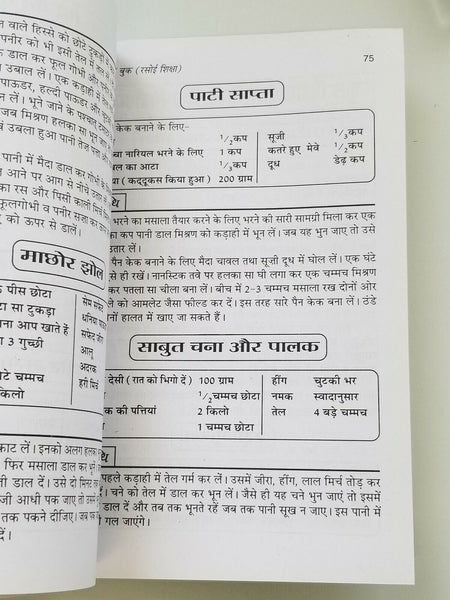 न वाले हिस्से को छोटे टुकड़ों
पनीर को भी इसी तेल में
डाल कर फूल गोभी और पनीर
उबाल लें। एक कड़ाही में
पाऊडर, हल्दी पाऊडर और
न लें। भूने जाने के पश्चात
जब मिश्रण हलका सा भून जाए
वं उबला हुआ पानी तेज
पानी में मैदा डाल कर गोभी के
आने पर आग से नीचे उतार
का रस और पिसी काली मिर्च
फूलगोभी व पनीर सज्जा का
को ऊपर से डालें।
माछोर झोल
के पीस छोटा
टा सा टुकड़ा
ना आप खाते हैं
ा 3 गुच्छी
टे चम्मच
किलो
आलू
अदरक
काट लें। इनको अलग हलका
फिर मसाला डाल कर भूनें
डाल दें। उसे दो मिनट
जी आधी पक जाए तो उसमें
तक पकने दीजिए। जब पक
दें।
बुक (रसोई शिक्षा)
75
पाटी साप्ता
केक बनाने के लिए-
1/2 कप
सूजी 1/3 कप
चा नारियल भरने के लिए 1 कप
कतरे हुए मेवे 1/2 कप
वल का आटा 1/3 कप
दूध डेढ़ कप
या (कद्दूकस किया हुआ) 200 ग्राम
धि
भरने का मसाला तैयार करने के लिए भरने की सारी सामग्री मिला कर एक
का कप पानी डाल मिश्रण को कड़ाही में भून लें। जब यह भुन जाए तो उसे
उतार लें।
पैन केक बनाने के लिए मैदा चावल तथा सूजी दूध में घोल लें। एक घंटे
से ही रखें। नानस्टिक तवे पर हलका सा घी लगा कर एक चम्मच मिश्रण
कर पतला सा चीला बना लें। बीच में 2-3 चम्मच मसाला रख दोनों ओर
ले को आमलेट जैसा फील्ड कर दें। इस तरह सारे पैन केक बना लें। ठंडे
दोनों हालत में खाए जा सकते हैं।
साबुत चना और पालक
देसी (रात को भिगो दें) 100 ग्राम
हींग चुटकी भर
1/2 चम्मच छोटा
नमक स्वादानुसार
क की पत्तियां 2 किलो
तेल 4 बड़े चम्मच
1 चम्मच छोटा
धि
पहले कड़ाही में तेल गर्म कर लें। उसमें जीरा, हींग, लाल मिर्च तोड़ कर
। चने को तेल में डाल कर भून लें। जैसे ही यह चने भुन जाएं तो इसमें
डाल दें और तब तक भूनते रहें जब तक पानी सूख न जाए। इस पानी में
गल जाएंगे।